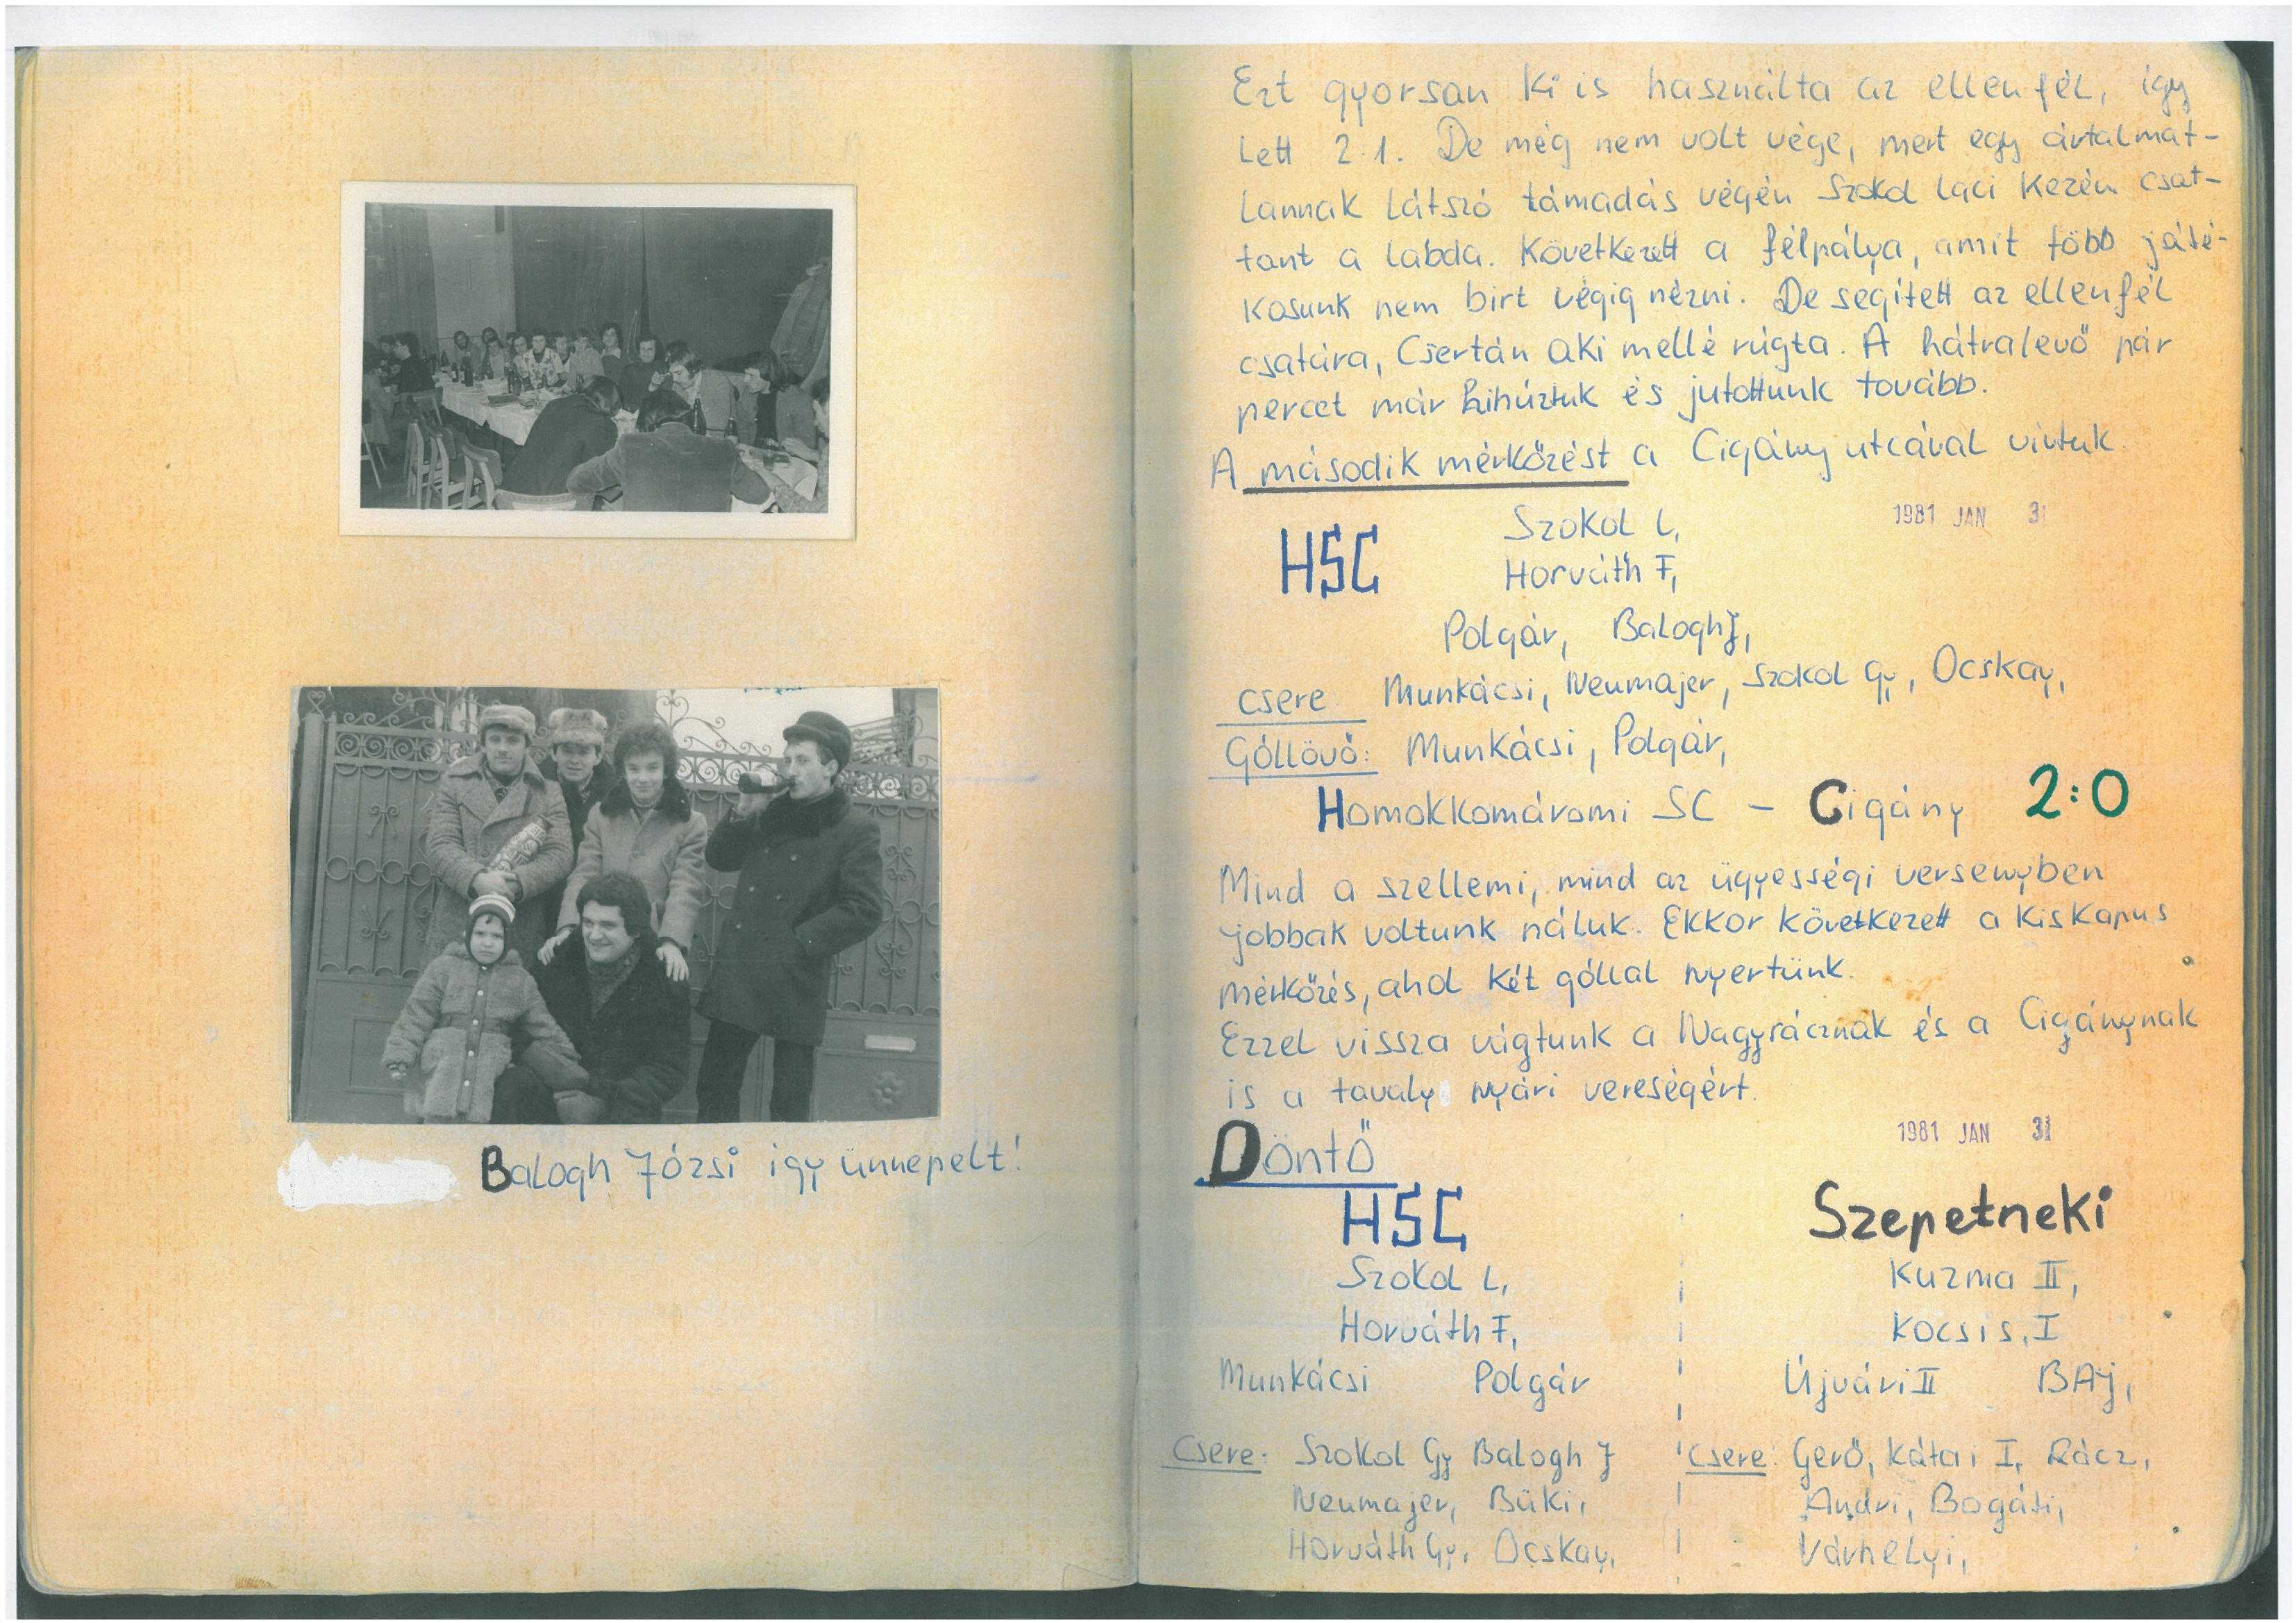 Balogh Józsi igy ünnepelt!
Ezt gyorsan ki is használta az ellenfél, igy
lett 2:1. De még nem volt vége, mert egy ártalmat-
lannak látszó támadás végén Szokol laci kezén csat-
tant a labda. Következett a félpálya, amit több játé-
kosunk nem birt végig nézni. De segített az ellenfél
csatára, Csertán aki mellé rúgta. A hátralevő pár
percet már kihúztuk és jutottunk tovább.
A második mérkőzést a Cigány utcával vívtuk.
1981 JAN 31
HSC
Szokol L,
Horváth F,
Polgár, Balogh J,
csere Munkácsi, Neumajer, Szokol Gy, Ocskay,
Góllövő: Munkácsi, Polgár,
Homokkomáromi SC - Cigány 2:0
Mind a szellemi, mind az ügyességi versenyben
jobbak voltunk náluk. Ekkor következett a kiskapus
mérkőzés, ahol két góllal nyertünk.
Ezzel vissza vágtunk a Nagyrácznak és a Cigánynak
is a tavaly nyári vereségért.
1981 JAN 31
Döntő
HSC Szepetneki
Szokol L, Kuzma II,
Horváth F, Kocsis, I
Munkácsi Polgár Újvári II BAJ,
Csere: Szokol Gy Balogh J csere: Gerő, Kátai I, Rácz,
Neumajer, Büki, Andri, Bogáti,
Horváth Gy, Ocskay, Várhelyi,